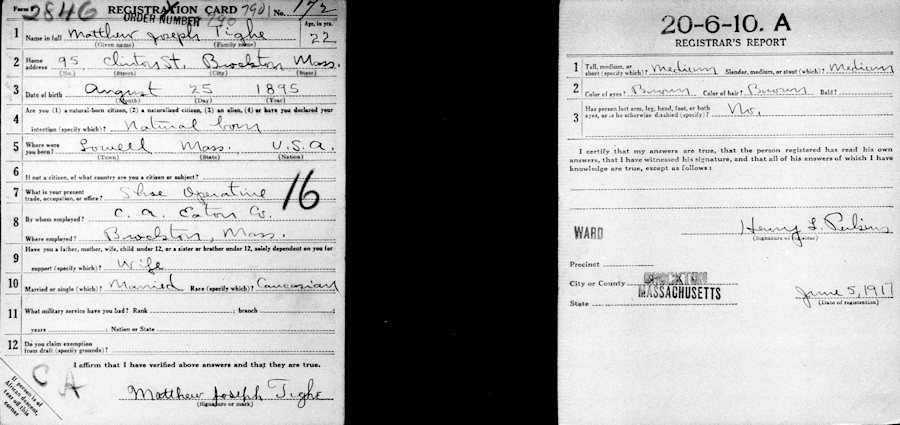 Form 1 2846 REGISTRATION CARD 7901 No. 172
ORDER NUMBER 790
Age, in yrs.
1 Name in full Matthew Joseph Tighe 22
(Given name) (Family name)
2 Home address 95 Clinton St. Brockton Mass.
(No.) (Street) (City) (State)
3 Date of birth August 25 1895
(Month) (Day) (Year)
4 Are you (1) a natural-born citizen, (2) a naturalized citizen, (3) an alien, (4) or have you declared your
intention (specify which)? Natural born
5 Where were you born? Lowell Mass. U.S.A.
(Town) (State) (Nation)
6 If not a citizen, of what country are you a citizen or subject?
7 What is your present trade, occupation, or office? Shoe Operative 16
8 By whom employed? C. A. Eaton Co.
Where employed? Brockton, Mass.
9 Have you a father, mother, wife, child under 12, or a sister or brother under 12, solely dependent on you for
support (specify which)? Wife
10 Married or single (which)? Married Race (specify which)? Caucasian
11 What military service have you had? Rank ; branch ;
years ; Nation or State
12 Do you claim exemption from draft (specify grounds)?
I affirm that I have verified above answers and that they are true.
C A
Matthew Joseph Tighe
(Signature or mark)
If person is of
African descent,
tear off this
corner
20-6-10. A
REGISTRAR'S REPORT
1 Tall, medium, or short (specify which)? Medium Slender, medium, or stout (which)? Medium
2 Color of eyes? Brown Color of hair? Brown Bald?
3 Has person lost arm, leg, hand, foot, or both eyes, or is he otherwise disabled (specify)? No.
I certify that my answers are true, that the person registered has read his own
answers, that I have witnessed his signature, and that all of his answers of which I have
knowledge are true, except as follows:
Henry L. Perkins
WARD (Signature of registrar)
Precinct
City or County BROCKTON
State MASSACHUSETTS June 5, 1917
(Date of registration)